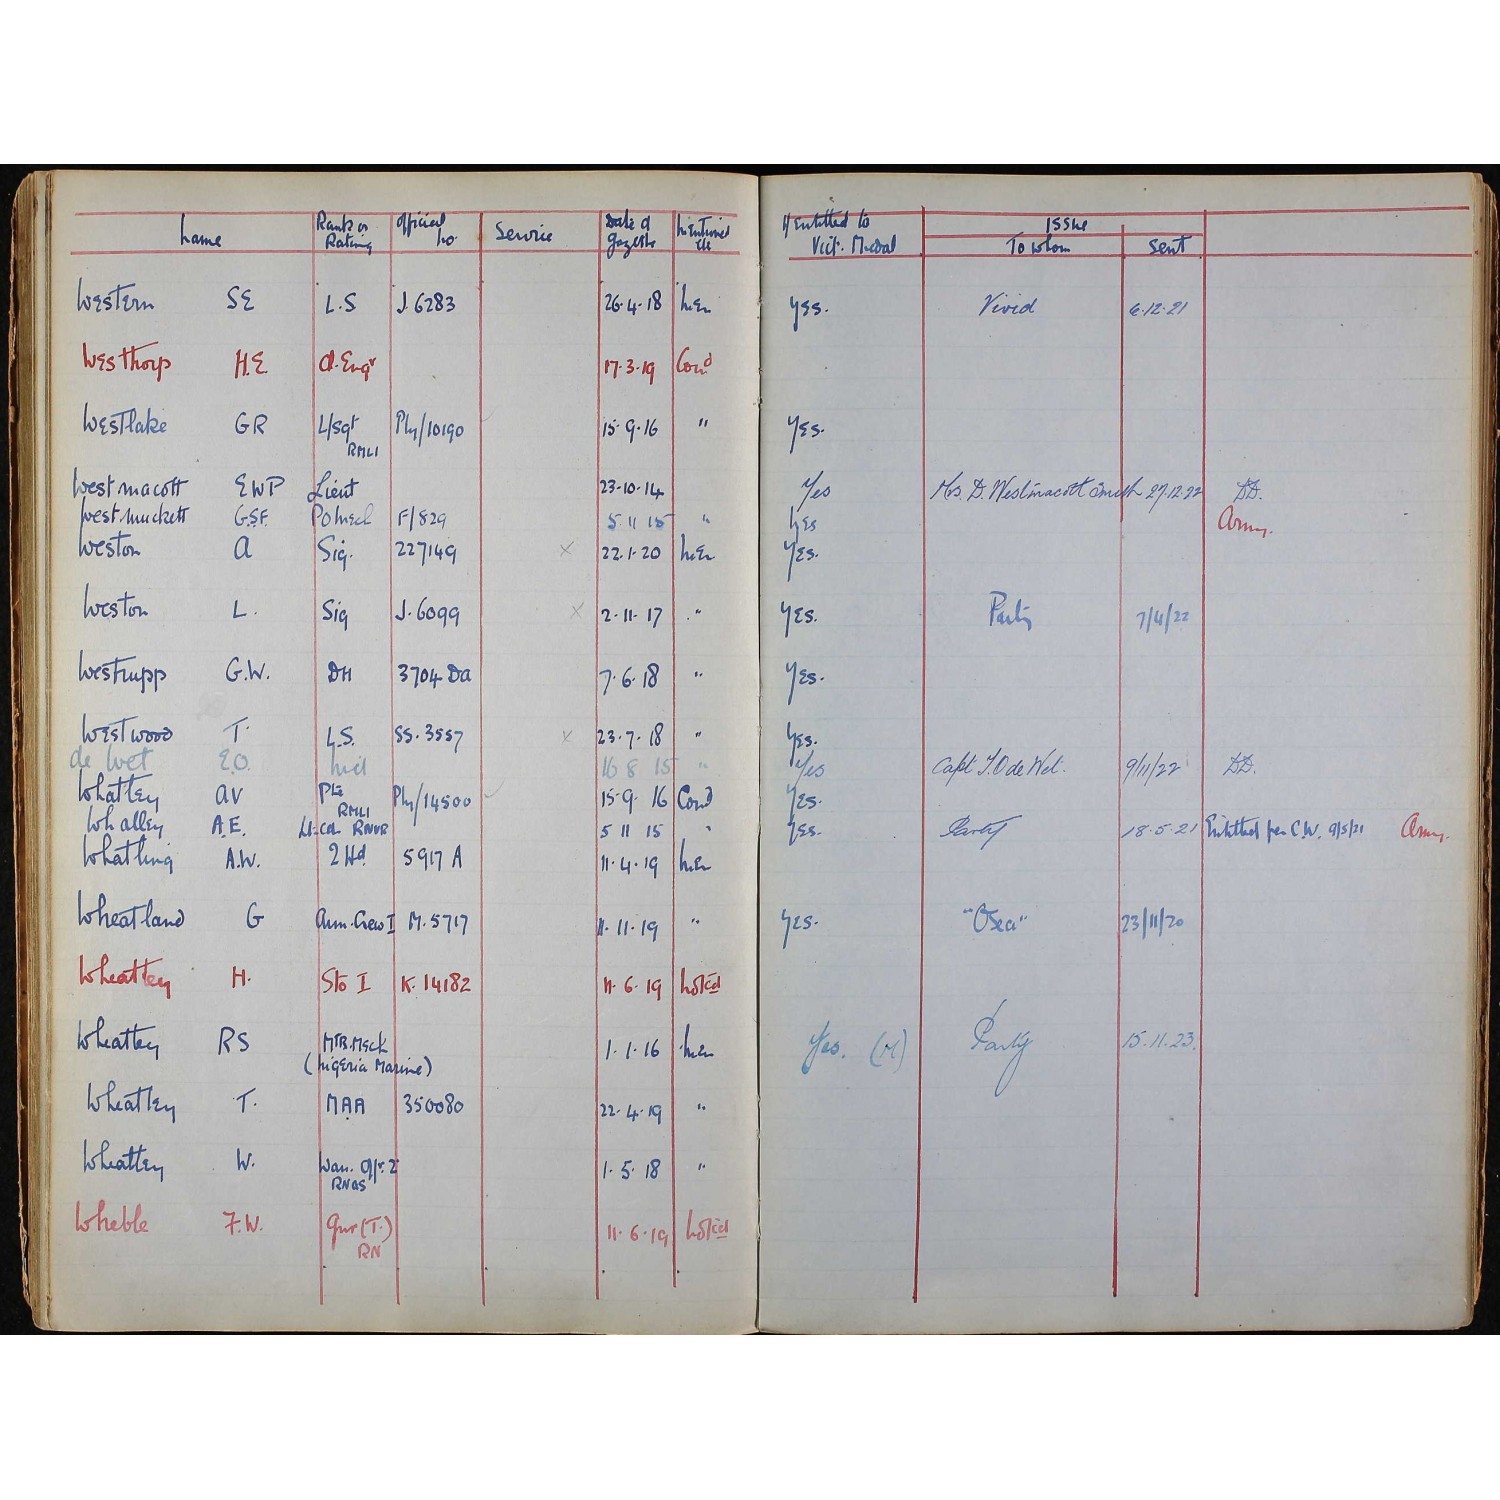 Name Rank or Rating Official No. Service Date of Gazette Mentioned etc If Entitled to Vict. Medal ISSUE To whom Sent
Western SE L.S J.6283 26.4.18 Men Yes. Vivid 6.12.21
Westhorp H.E. Ch.Engr 17.3.19 Comd
Westlake GR L/Sgt RMLI Ply/10190 15.9.16 " Yes.
Westmacott EWP Lieut 23.10.14 Yes Mrs. D. Westmacott Smith 27.12.22 DD.
Westmuckett G.S.F. PO Mech F/829 5 11 15 " Yes Army.
Weston A Sig. 227149 X 22.1.20 Men Yes.
Weston L. Sig J.6099 X 2.11.17 " Yes. Party 7/4/22
Westrupp G.W. DH 3704 Da 7.6.18 " Yes.
Westwood T. L.S. SS.3557 X 23.7.18 " Yes.
de Wet E.O. Mid 16 8 15 " Yes Capt. T.O de Wet. 9/11/22 DD.
Whatley AV Pte RMLI Ply/14500 15.9.16 Comd Yes.
Whalley A.E. Lt-Cdr RNVR 5 11 15 " Yes. Party 18.5.21 Entitled per C.W. 9/5/21 Army.
Whatling A.W. 2Hd. 5917 A 11.4.19 Men
Wheatland G Arm.Crew I M.5717 11.11.19 " Yes. "Osea" 23/11/20
Wheatley H. Sto I K.14182 11.6.19 Noted
Wheatley RS Mtr.Mech (Nigeria Marine) 1.1.16 Men Yes. (M) Party 15.11.23.
Wheatley T. MAA 350080 22.4.19 "
Wheatley W. Warr. Offr. 2 RNAS 1.5.18 "
Wheble F.W. Gnr (T.) RN 11.6.19 Noted